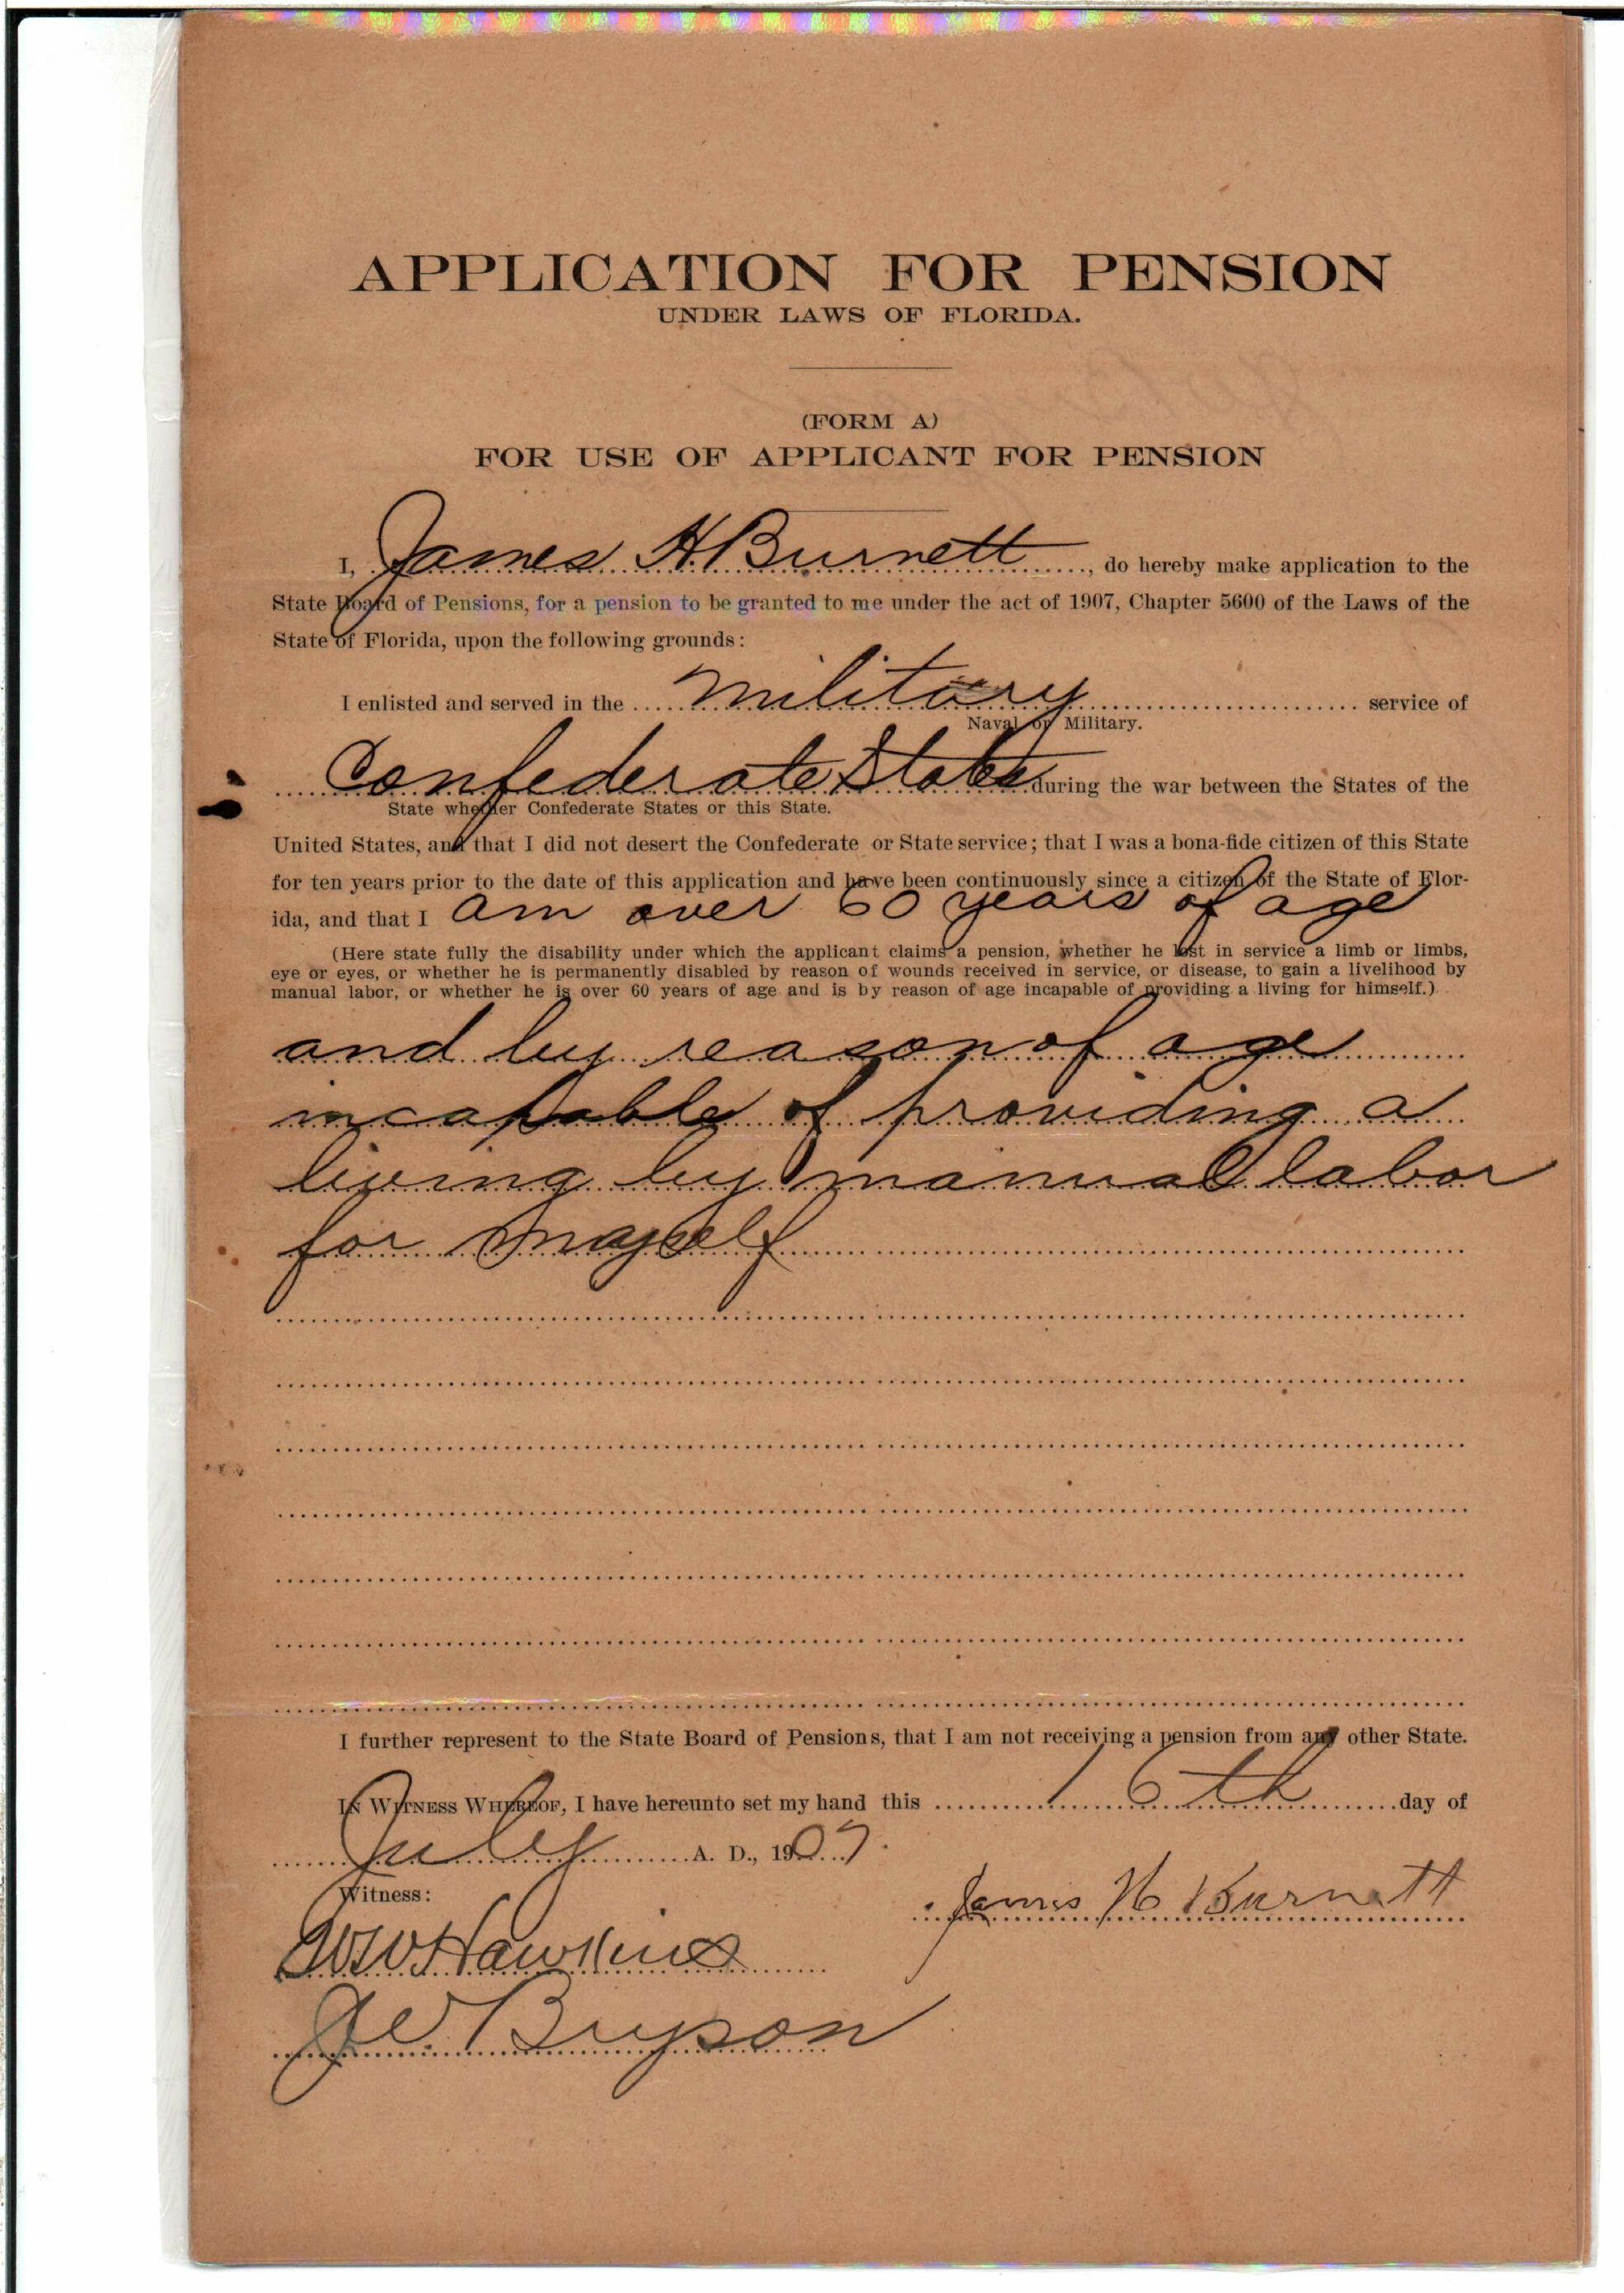 APPLICATION FOR PENSION
UNDER LAWS OF FLORIDA.
(FORM A)
FOR USE OF APPLICANT FOR PENSION
I, James H. Burnett, do hereby make application to the
State Board of Pensions, for a pension to be granted to me under the act of 1907, Chapter 5600 of the Laws of the
State of Florida, upon the following grounds:
I enlisted and served in the military service of
Naval or Military.
Confederate States during the war between the States of the
State whether Confederate States or this State.
United States, and that I did not desert the Confederate or State service; that I was a bona-fide citizen of this State
for ten years prior to the date of this application and have been continuously since a citizen of the State of Flor-
ida, and that I am over 60 years of age
(Here state fully the disability under which the applicant claims a pension, whether he lost in service a limb or limbs,
eye or eyes, or whether he is permanently disabled by reason of wounds received in service, or disease, to gain a livelihood by
manual labor, or whether he is over 60 years of age and is by reason of age incapable of providing a living for himself.)
and by reason of age
incapable of providing a
living by manual labor
for myself
I further represent to the State Board of Pensions, that I am not receiving a pension from any other State.
IN WITNESS WHEREOF, I have hereunto set my hand this 16th day of
July A. D., 1907.
Witness:
James H Burnett
WW Hawkins
JW Bryson